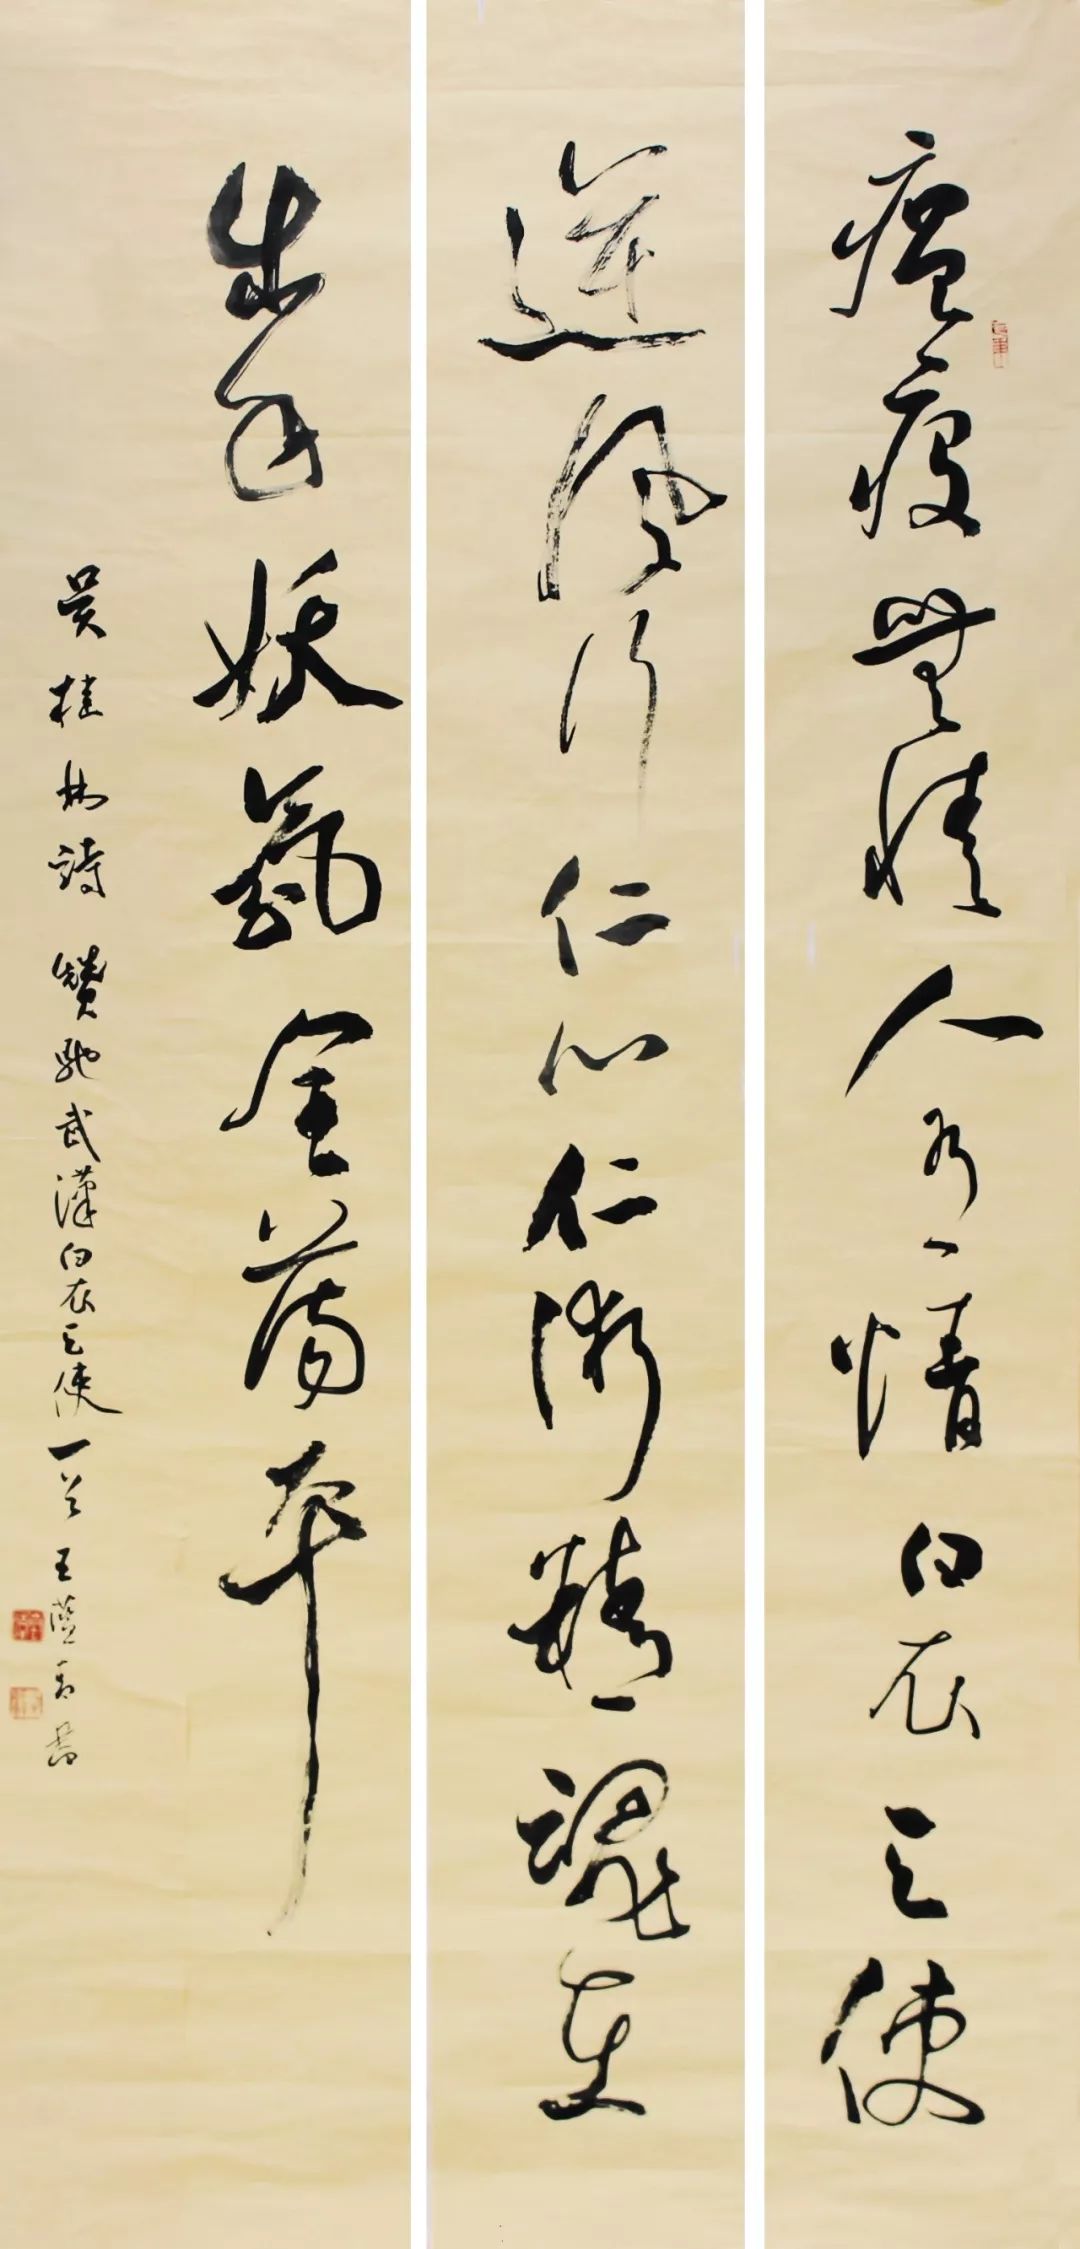 瘟疫無情人有情白衣天使
逆風行仁心仁術精魂在
妖氛全蕩平
吳桂林詩 贊馳武漢白衣天使一首 王 書